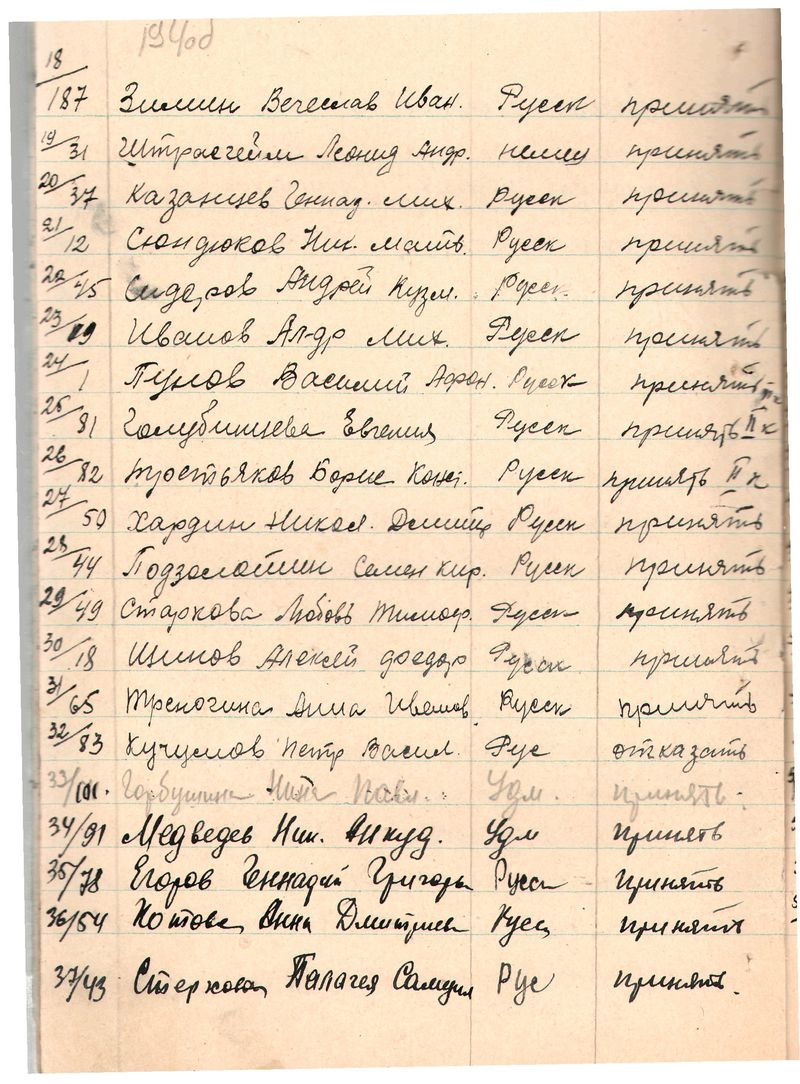 1940 г
18/187 Зимин Вечеслав Иван. Русск принять
19/31 Штрасгейм Леонид Андр. немец принять
20/37 Казанцев Геннад. Мих. Русск принять
21/12 Сюндюков Ник. Матв. Русск принять
22/45 Сидоров Андрей Кузм. Русск принять
23/19 Иванов Ал-др Мих. Русск принять
24/1 Василий Афон. Русск принять
25/81 Евгения Русск принять II к
26/82 Борис Конст. Русск принять II к
27/50 Хардин Никол. Дмитр Русск принять
28/44 Подзолотин Семен Кир. Русск принять
29/49 Старкова Любовь Тимоф. Русск принять
30/18 Шинов Алексей Федор Русск принять
31/65 Треногина Анна Иванов. Русск принять
32/83 Кучумов Петр Васил. Рус отказать
33/101. Горбушина Нина Павл. Удм. принять.
34/91 Медведев Ник. Анкуд. Удм принять
35/78 Егоров Геннадий Григорь Русск принять
36/54 Котова Анна Дмитриев Русс принять
37/43 Палагея Самуил Рус принять.